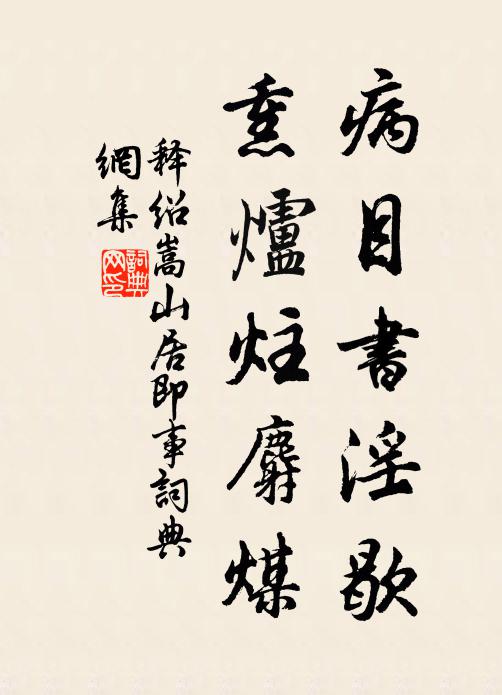 病目書淫歇
熏爐炷麝煤
释绍嵩山居即事詞典
網集
詞典
网印